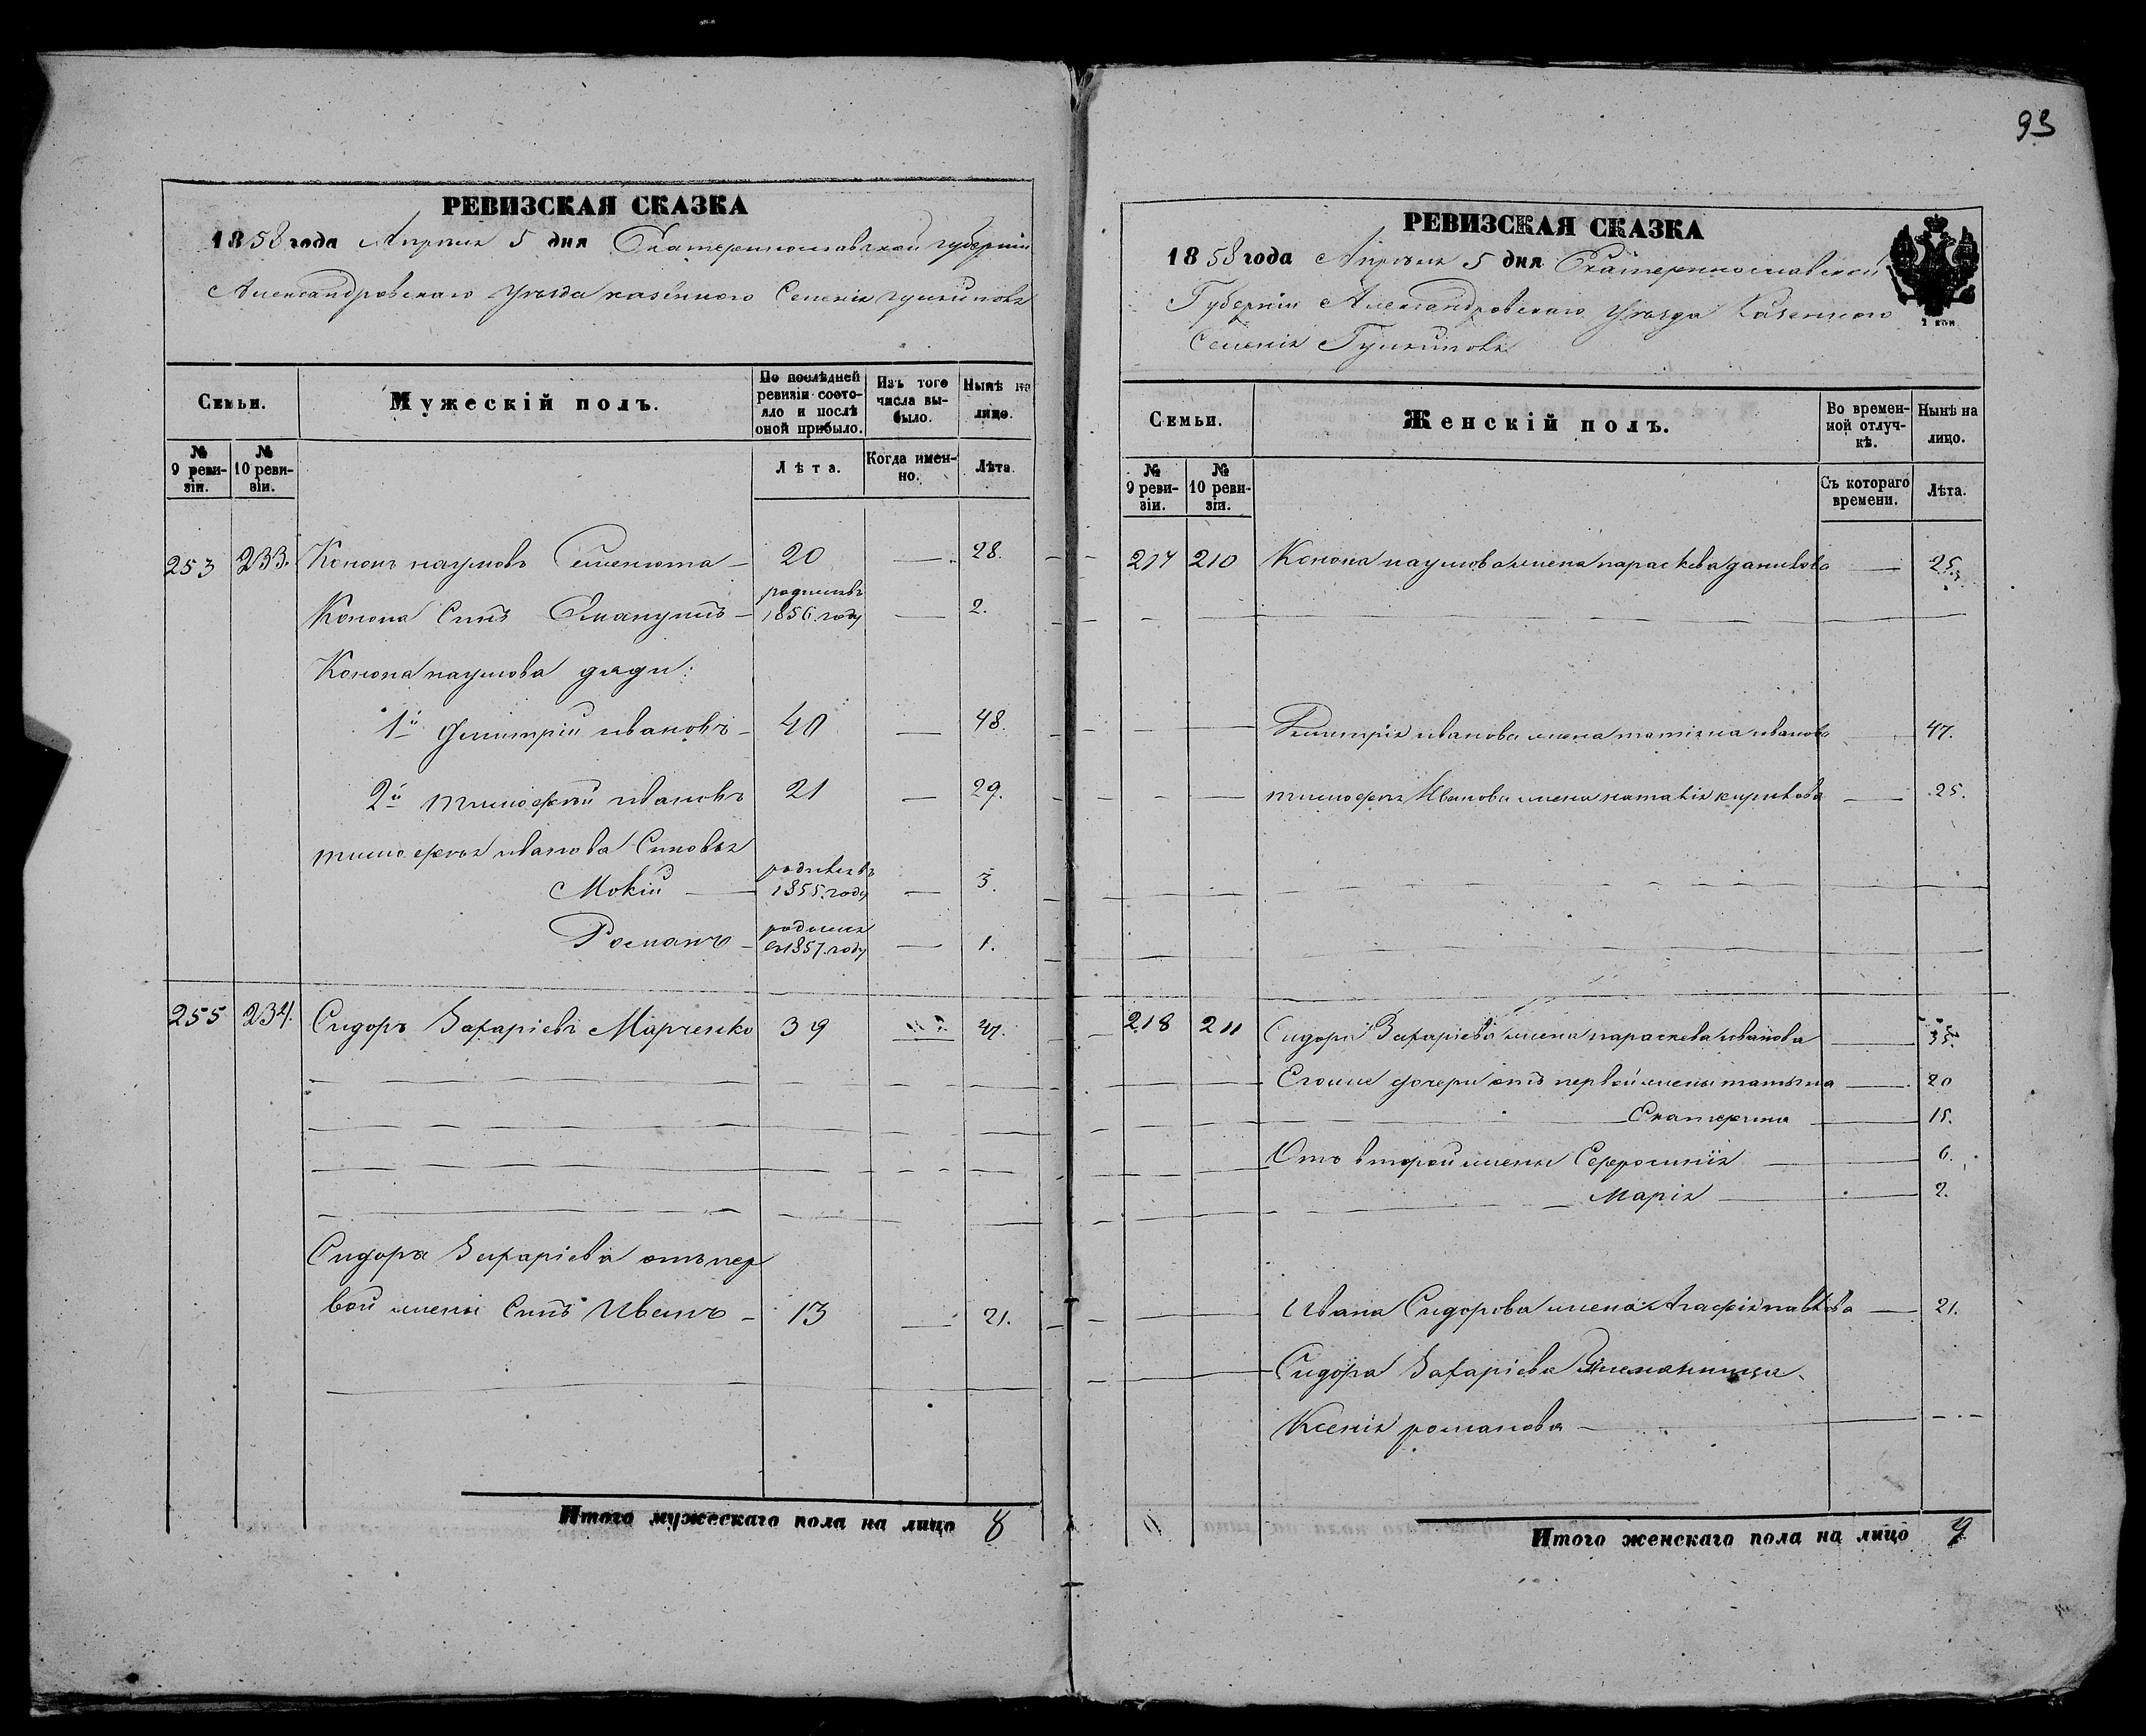 93
РЕВИЗСКАЯ СКАЗКА
1858 года Апреля 5 дня Екатеринославской губерніи
Александровскаго уезда казенного Селенія
Семьи.
Мужескій полъ.
По послѣдней ревизіи состояло и послѣ оной прибыло.
Изъ того числа выбыло.
Нынѣ на лицо.
№ 9 ревизіи.
№ 10 ревизіи.
Лѣта.
Когда именно.
Лѣта.
253 233. Кононъ наумовъ Семенюта 20 28.
Конона Сынъ родился въ 1856 году 2.
Конона наумова дяди:
1й Дмитрій ивановъ 40 48.
2й тимофей ивановъ 21 29.
тимофея иванова Сыновья
Мокій родился въ 1855 году 3.
Романъ родился въ 1857 году 1.
255 234. Сидоръ Захаріевъ Марченко 39 47.
Сидора Захаріева отъ пер
вой жены Сынъ Иванъ 13 21.
Итого мужескаго пола на лицо 8
РЕВИЗСКАЯ СКАЗКА
1858 года Апреля 5 дня Екатеринославской
Губерніи Александровскаго Уезда Казенного
Селенія
2 коп
Семьи.
Женскій полъ.
Во временной отлучкѣ.
Нынѣ на лицо.
№ 9 ревизіи.
№ 10 ревизіи.
Съ котораго времени.
Лѣта.
217 210 Конона наумова жена параскева данилова 25.
Дмитрія иванова жена татіяна иванова 47.
тимофея Иванова жена наталія кирилова 25.
218 211 Сидора Захаріева жена параскева иванова 35.
Егоже дочери отъ первой жены татьяна 20
Екатерина 15.
Отъ второй жены Евфросинія 6.
Марія 2.
Ивана Сидорова жена Агафія павлова 21.
Сидора Захаріева племянница
Ксенія романова
Итого женскаго пола на лицо 9